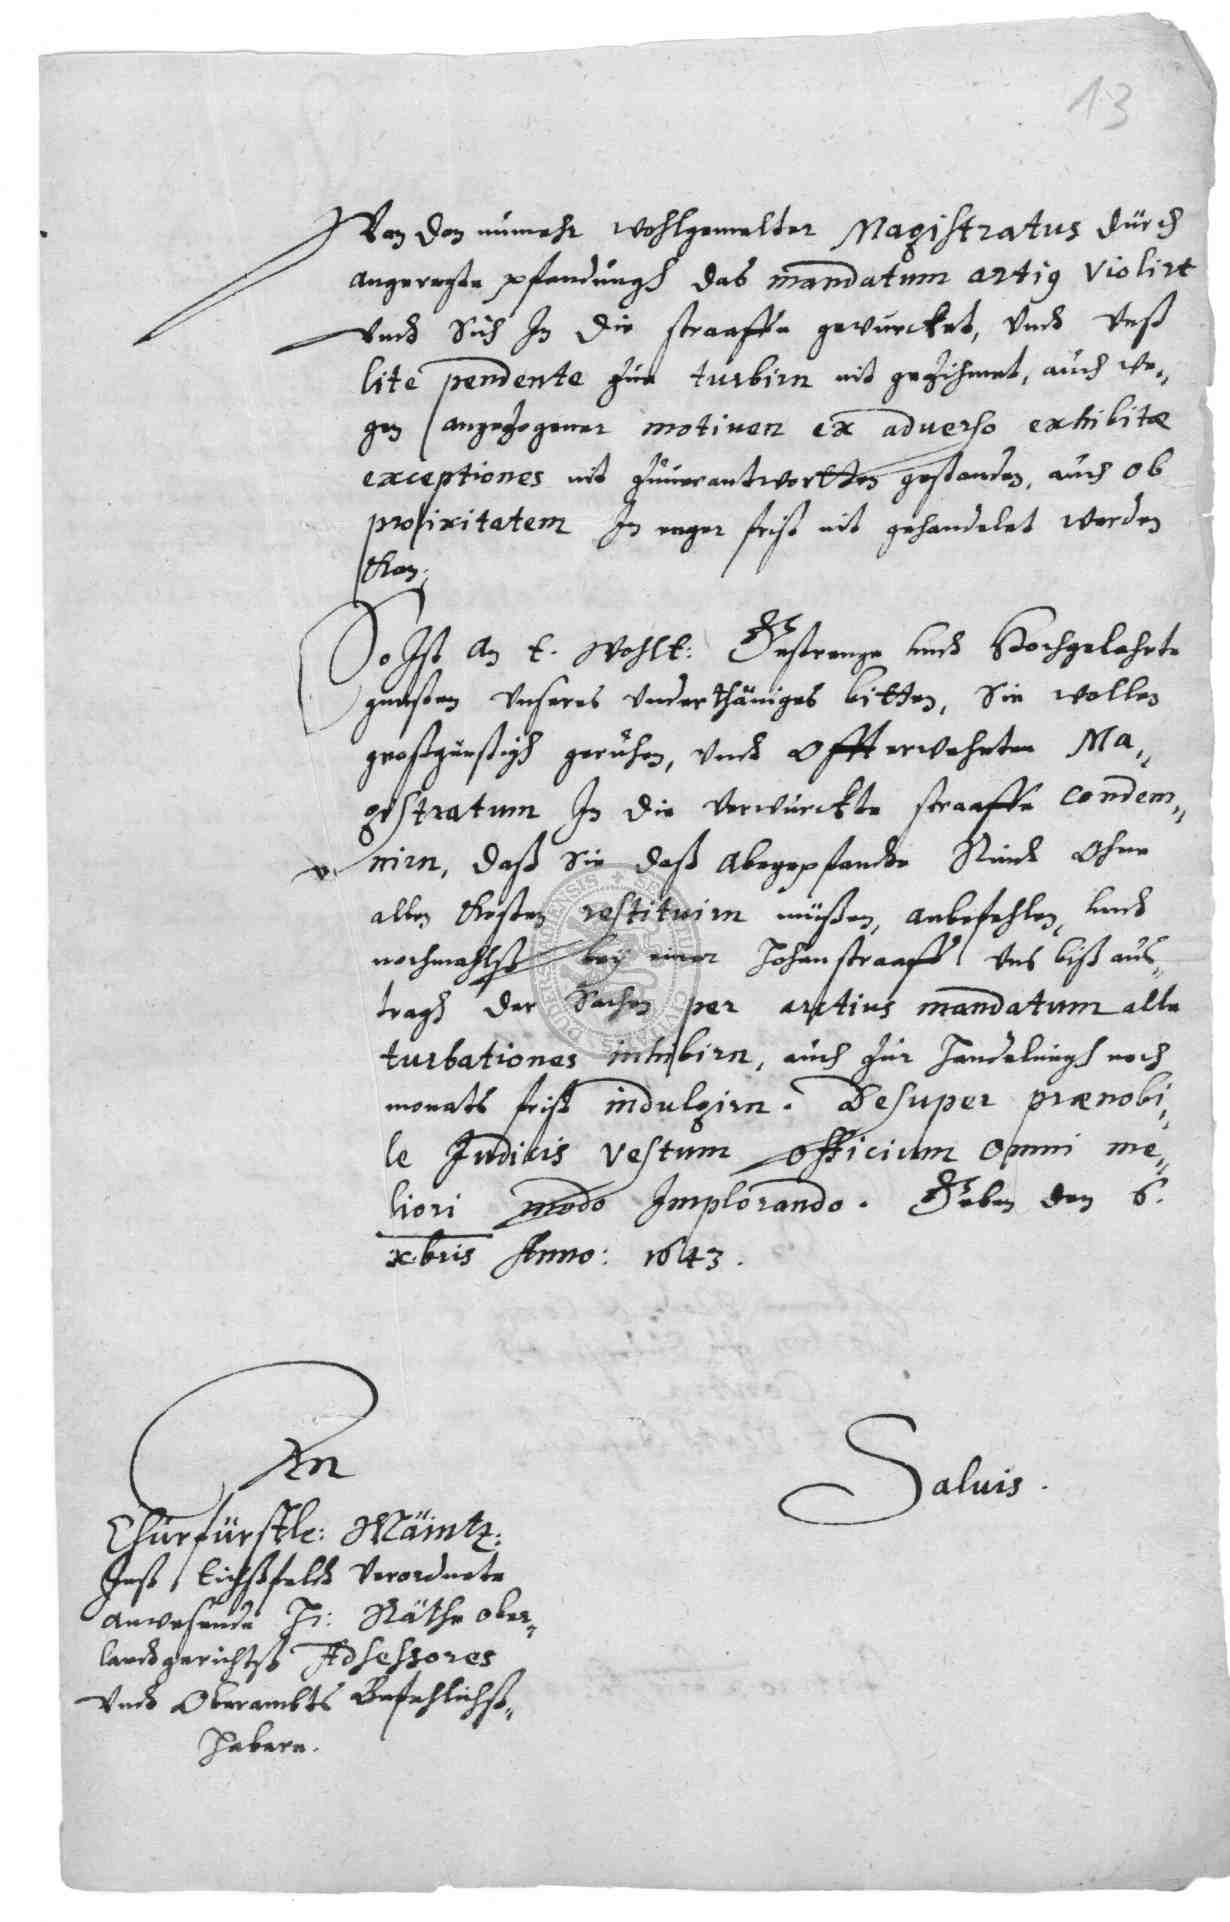 13
Wan dan nunmehr wohlgemelter Magistratus durch
angeregte pfandungh das mandatum artig violirt
undt Sich In die straaffe gewurcket, undt Unß
lite pendente zue turbirn nit gezihmet, auch we„
gen angezogener motiven ex adverso exhibitæ
exceptiones nit zuuerantwortten gestanden, auch ob
prolixitatem In enger frist nit gehandelet werden
Kan;
So Ist An E. WohlE: Gestrenge undt Hochgelahrte
gunsten Unseres Underthäniges bitten, Sie wollen
großgünstigh geruhen, undt Offterwehnten Ma„
gistratum In die verwurckte straaffe condem„
nirn, daß Sie daß Abegepfandte Rindt Ohne
allen Kosten restituirn müßen, anbefehlen, undt
nochmahlß bey einer Hohen straaff Uns biß auß„
tragh der Sachen per arctius mandatum alle
turbationes inhibirn, auch zur Handelungh noch
monats frist indulgirn. Desuper prænobi„
le Iudicis vestrum officium omni me„
liori modo Implorando. Geben den 6.
xbris Anno: 1643.
Saluis.
An
Churfürstle: Mäintz:
Inß Eichßfeldt Verordnete
Anwesende H: Räthe Ober„
landgerichtß Adsessores
Undt Oberambts Befehlichß„
Habere.